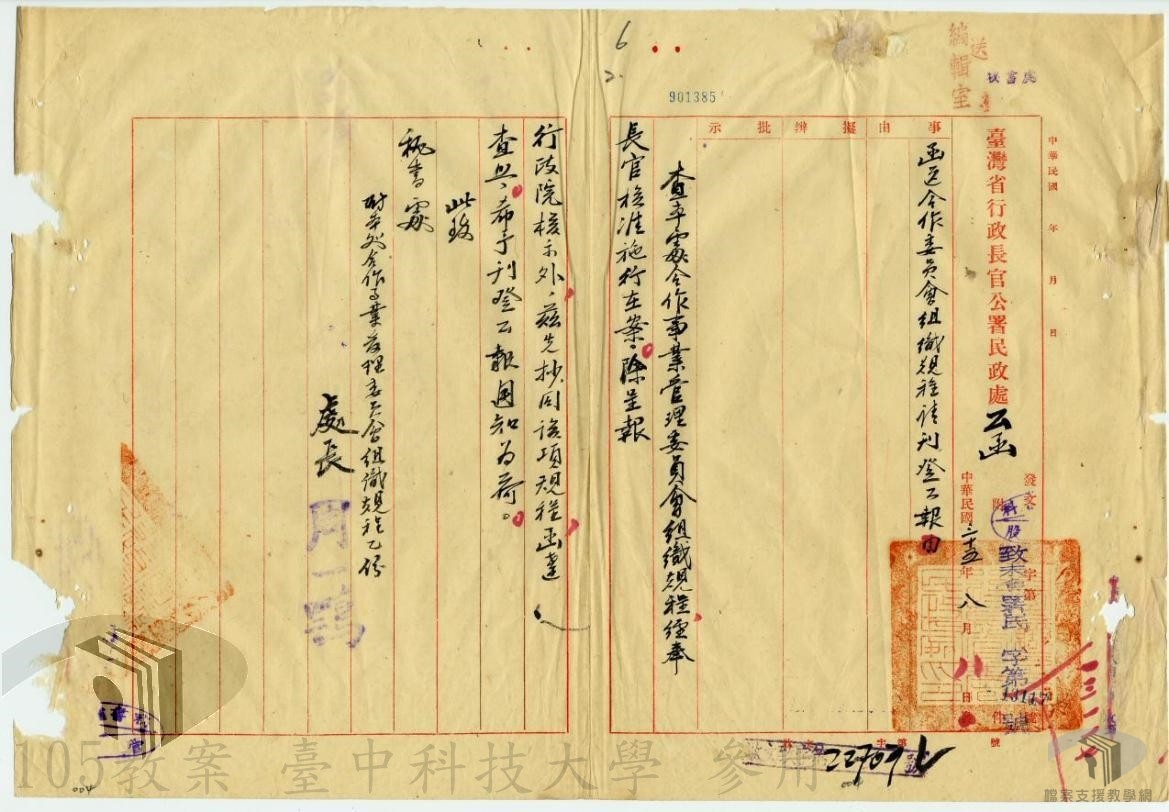 送
編輯室
901385
臺灣省行政長官公署民政處公函
中華民國 年 月 日
發文
附
中華民國三十五年八月八日
字第
號
件
致未
署民 字第
號
事由
擬辦
批示
函送合作委員會組織規程請刊登公報由
查本處合作事業管理委員會組織規程經奉
長官核准施行在案、除呈報
行政院核示外、茲先抄同該項規程函達
查照、希予刊登公報週知為荷。
此致
秘書處
附奉送合作事業管理委員會組織規程乙份
處長
105教案 臺中科技大學 參用
檔案支援教學網
004